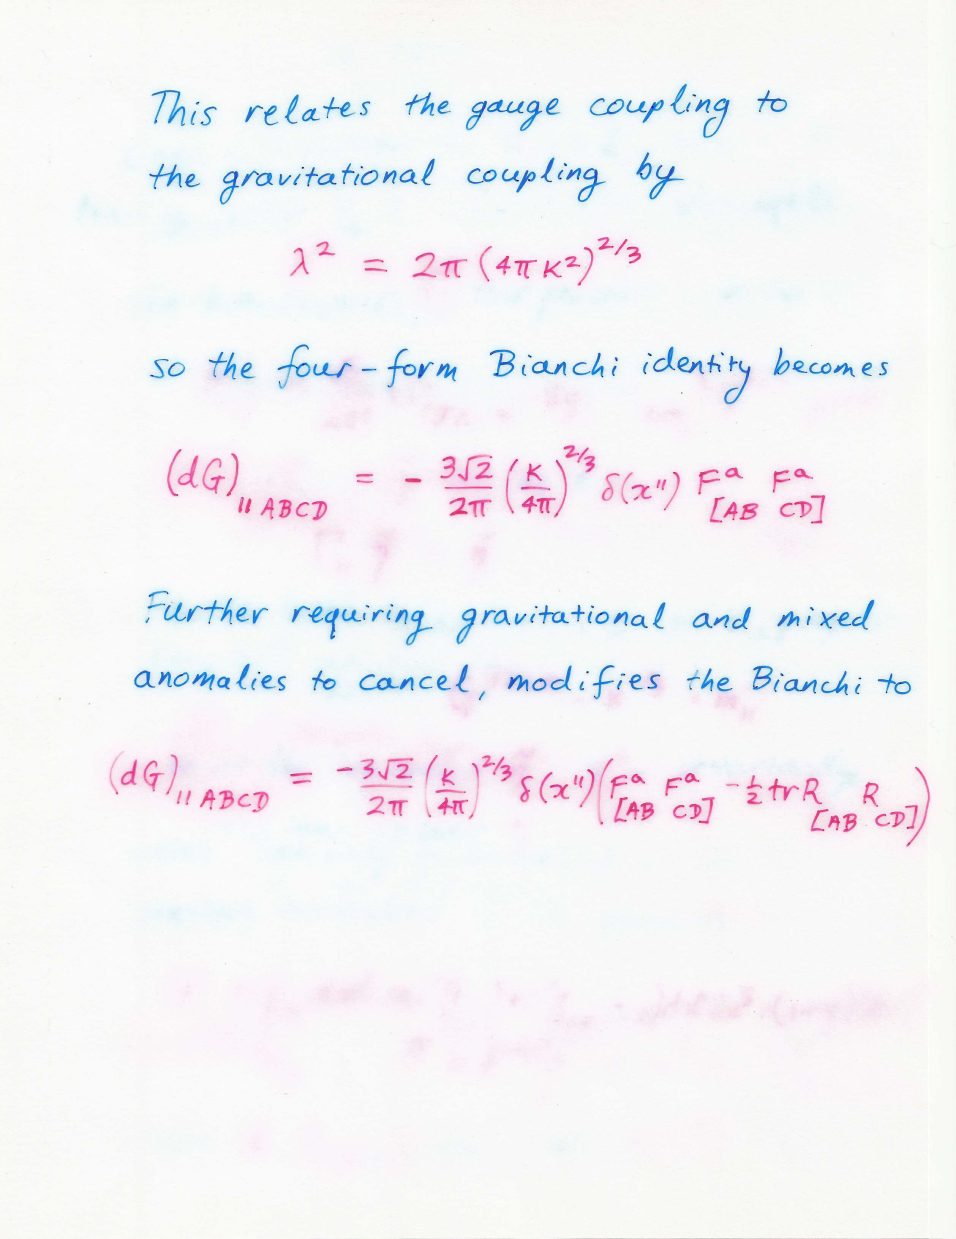 This relates the gauge coupling to
the gravitational coupling by
λ² = 2π (4π κ²)^{2/3}
so the four-form Bianchi identity becomes
(dG)_{11 ABCD} = - \frac{3√2}{2π} (\frac{κ}{4π})^{2/3} δ(x^{11}) F^a_{[AB} F^a_{CD]}
Further requiring gravitational and mixed
anomalies to cancel, modifies the Bianchi to
(dG)_{11 ABCD} = \frac{-3√2}{2π} (\frac{κ}{4π})^{2/3} δ(x^{11}) (F^a_{[AB} F^a_{CD]} - \frac{1}{2} tr R_{[AB} R_{CD]})